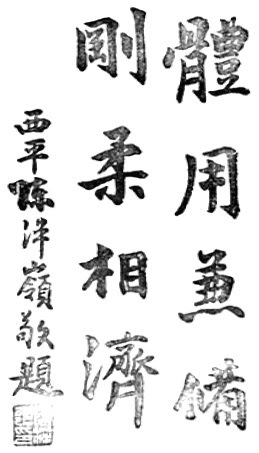 體用兼備
剛柔相濟
西平縣洋嶺敬題